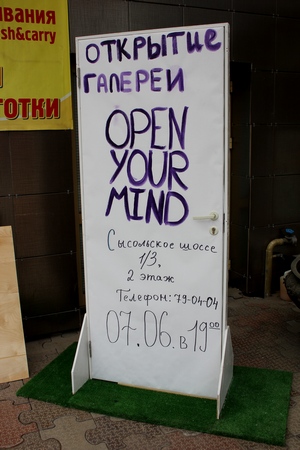 ивания
sh&carry
ОТКРЫТИЕ
ГАЛЕРЕИ
OPEN
YOUR
MIND
Сысольское шоссе
1/3,
2 этаж
Телефон: 79-04-04
07.06. в 19 00